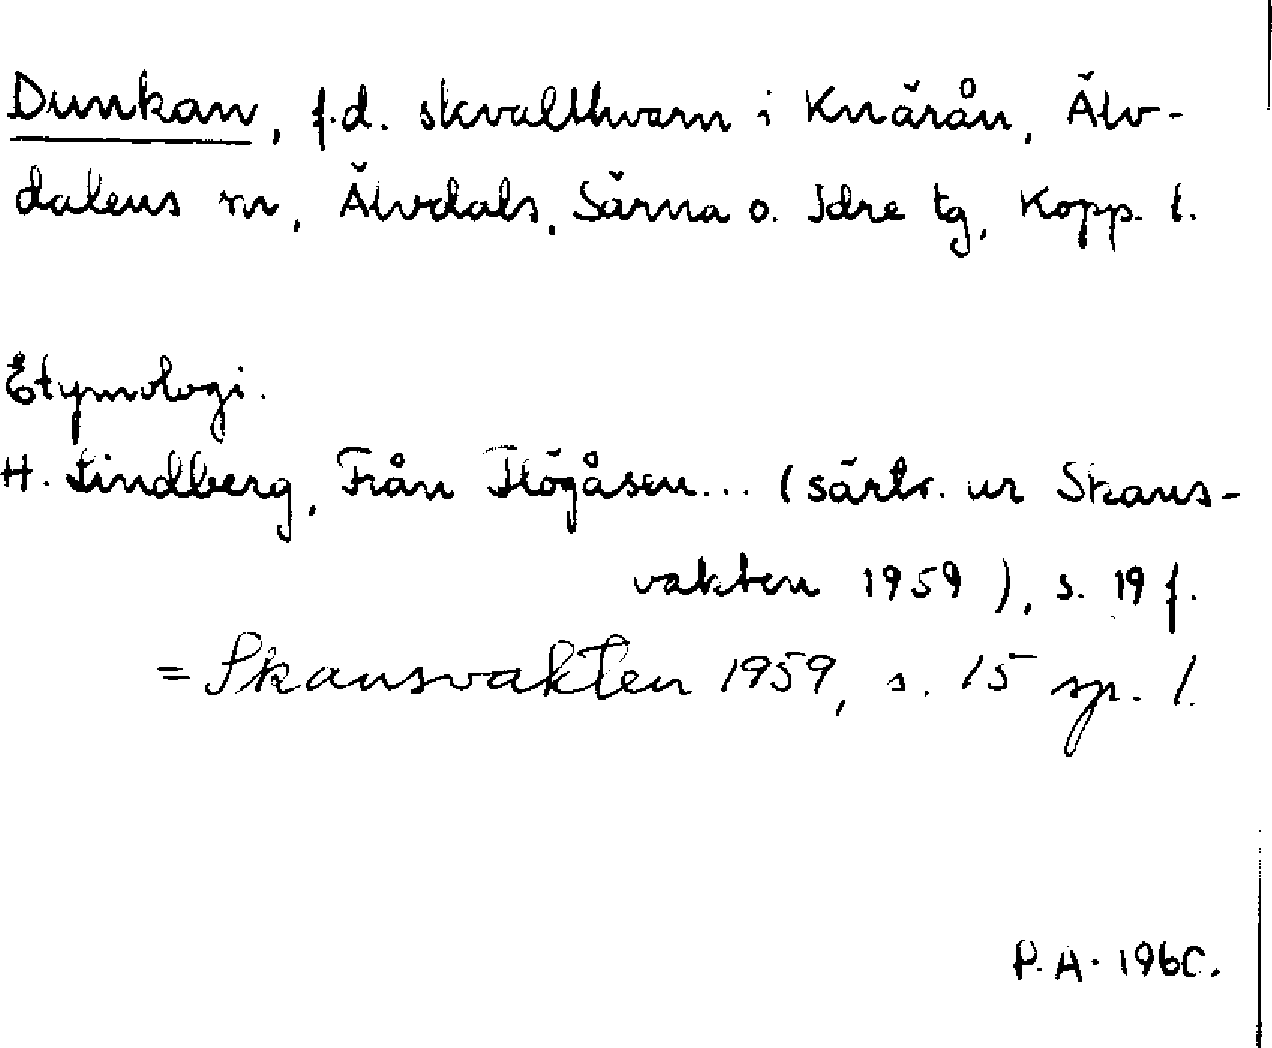 Dunkan, f.d. skvaltkvarn i Knärån, Älv-
dalens sn, Älvdals, Särna o. Idre tg, Kopp. l.
Etymologi.
H. Lindberg, Från Högåsen... (särtr. ur Skans-
vakten 1959), s. 19 f.
= Skansvakten 1959, s. 15 sp. 1.
P. A. 1960.